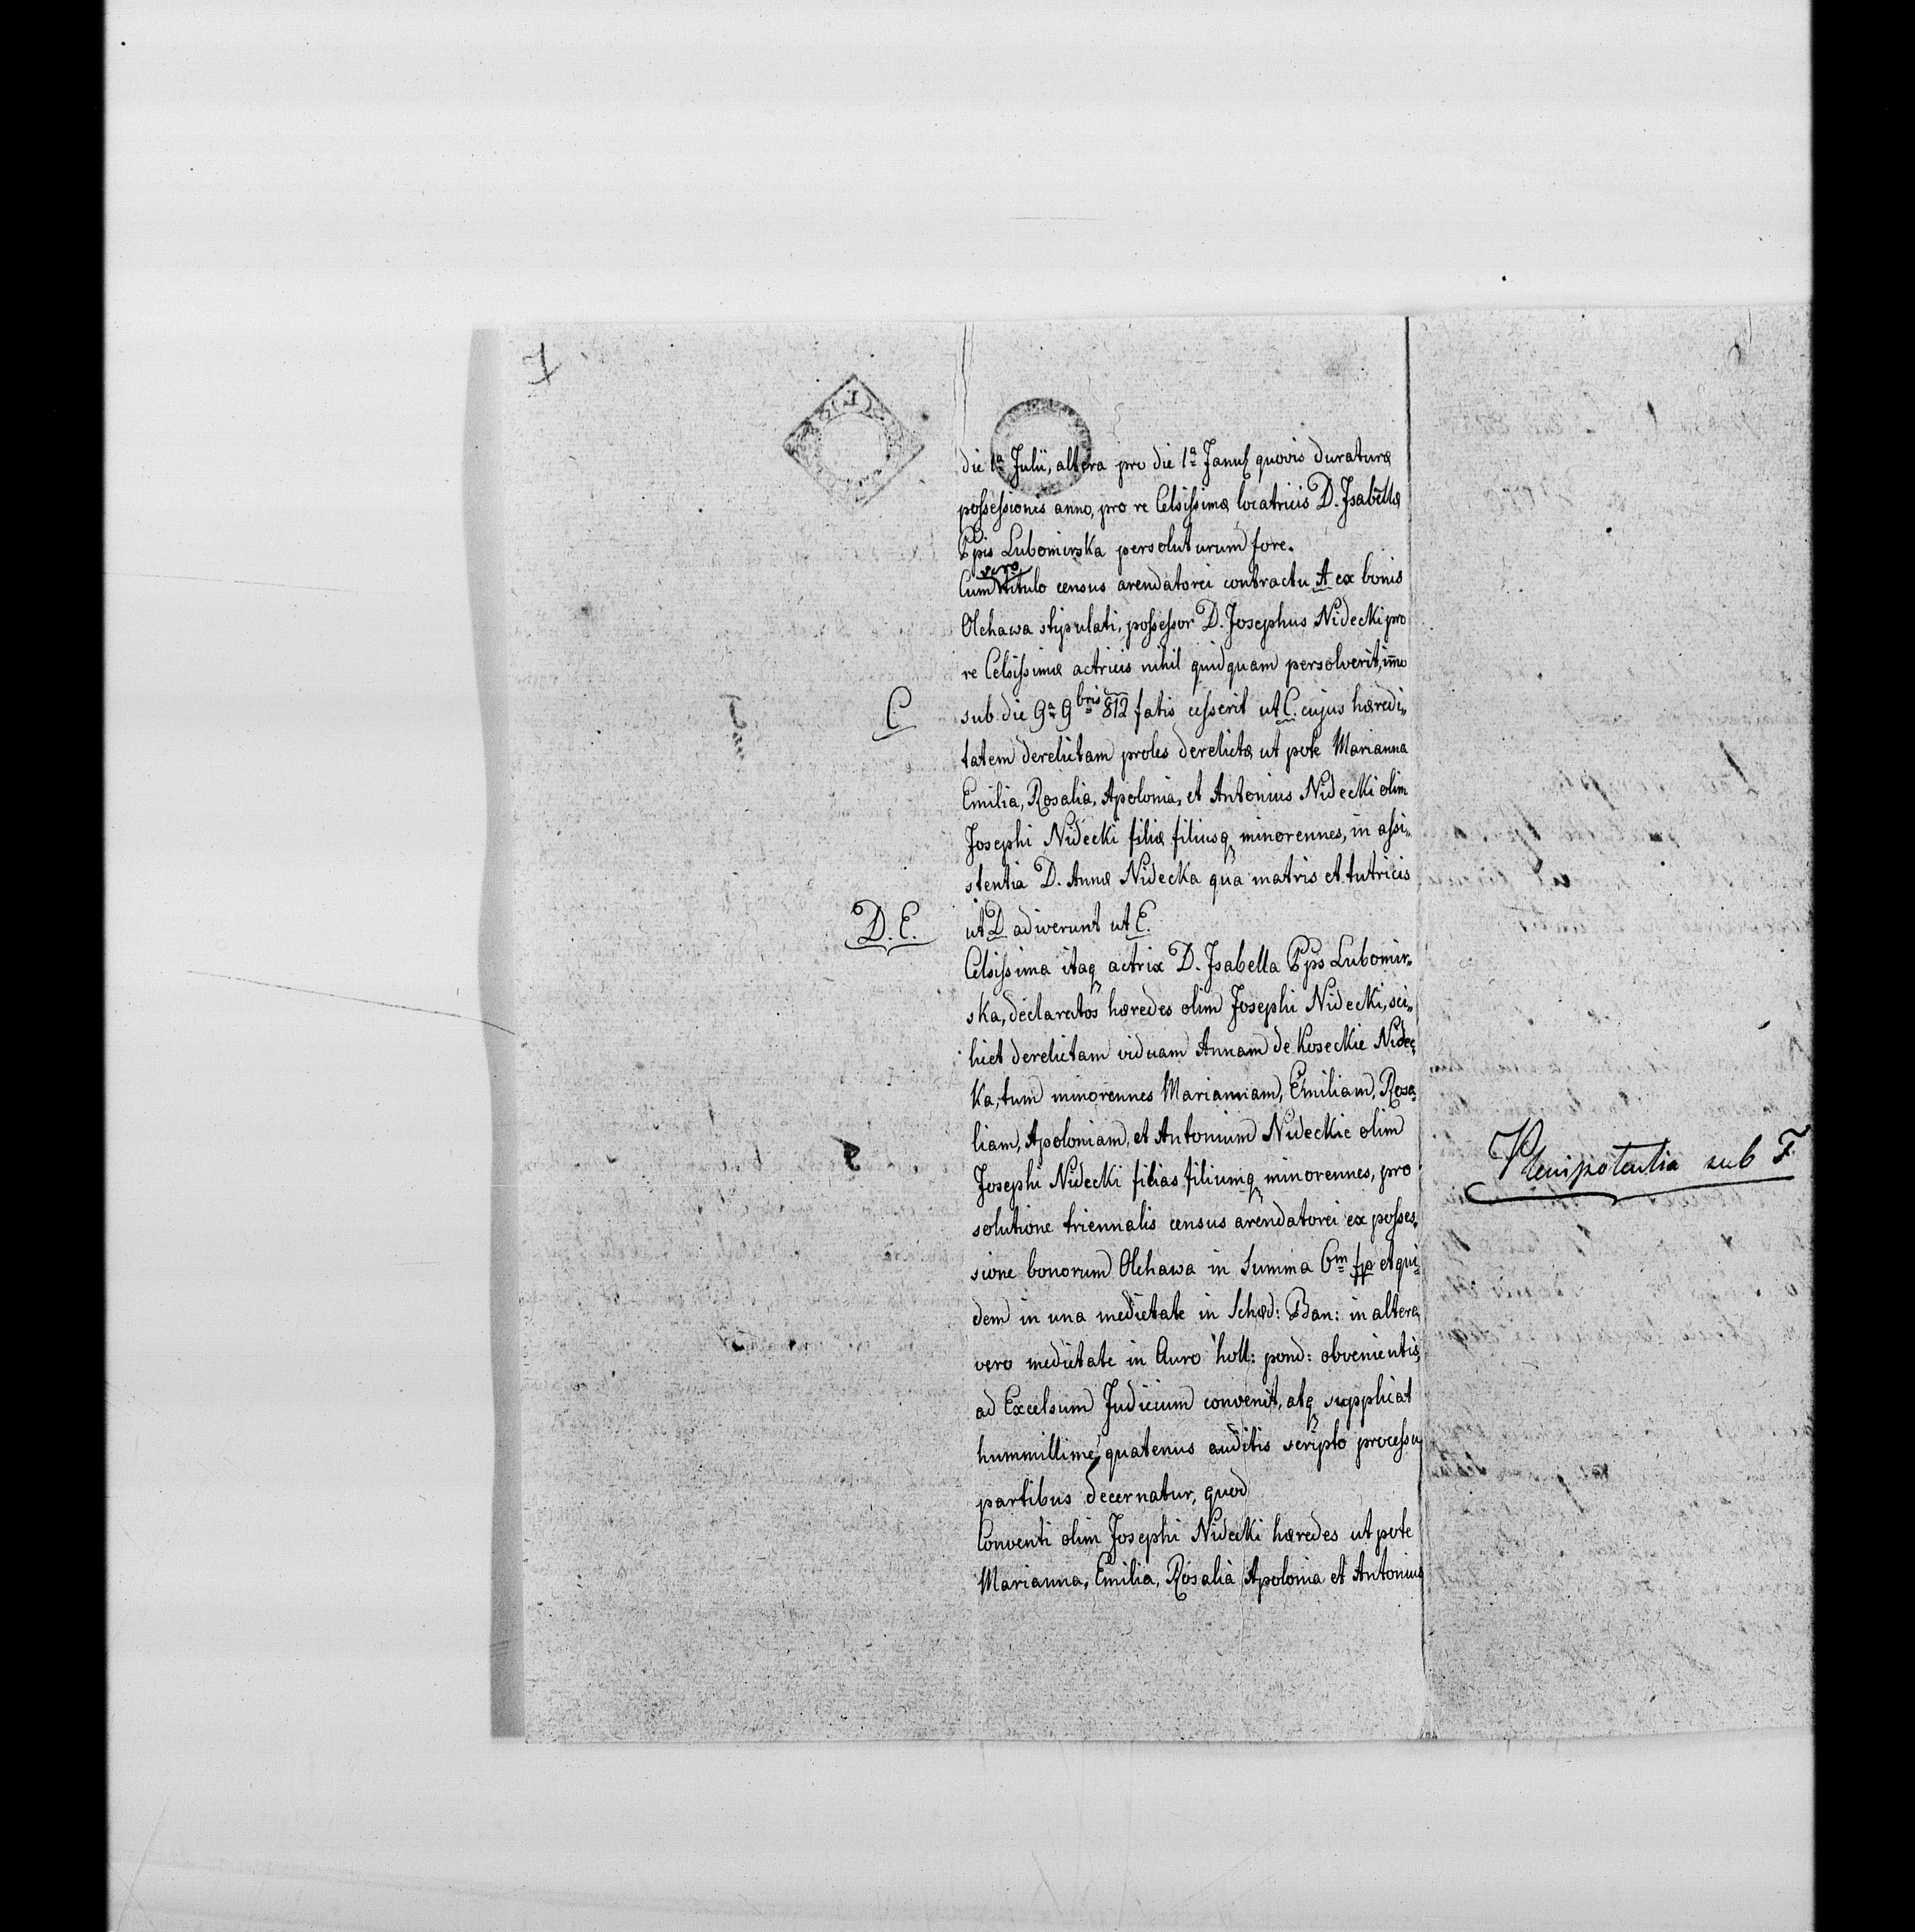 die 1ª Julii, altera pro die 1ª Janu quovis duraturæ
possessionis anno, pro re Celsissimæ locatricis D. Isabellæ
Ppis Lubomirska persoluturum fore.
vero
Cum titulo census arendatorei contractu A ex bonis
Olchawa stipulati, possessor D. Josephus Nidecki pro
re Celsissimæ actricis nihil quidquam persolverit, imo
C. sub die 9ª 9bris 812 fatis cesserit ut C. cujus hæredi„
tatem derelictam proles derelictæ ut pote Marianna
Emilia, Rosalia, Apolonia, et Antonius Nidecki olim
Josephi Nidecki filiæ filiusq minorennes, in assi„
stentia D. Annæ Nidecka qua matris et tutricis
D. E. ut D adiverunt ut E.
Celsissima itaq actrix D. Isabella Pps Lubomir„
ska, declaratos hæredes olim Josephi Nidecki, sci„
licet derelictam viduam Annam de Koseckie Nidec„
ka, tum minorennes Mariannam, Emiliam, Rosa„
liam, Apoloniam, et Antonium Nideckie olim
Josephi Nidecki filias filiumq minorennes, pro
solutione triennalis census arendatorei ex posses„
sione bonorum Olchawa in Summa 6m fp et qui„
dem in una medietate in Sched: Ban: in altera
vero medietate in Auro holl: pond: obvenientis,
ad Excelsum Judicium convenit, atq supplicat
hummillime, quatenus auditis scripto processu
partibus decernatur, quod
Conventi olim Josephi Nidecki hæredes ut pote
Marianna, Emilia, Rosalia Apolonia et Antonius
Plenipotentia sub F